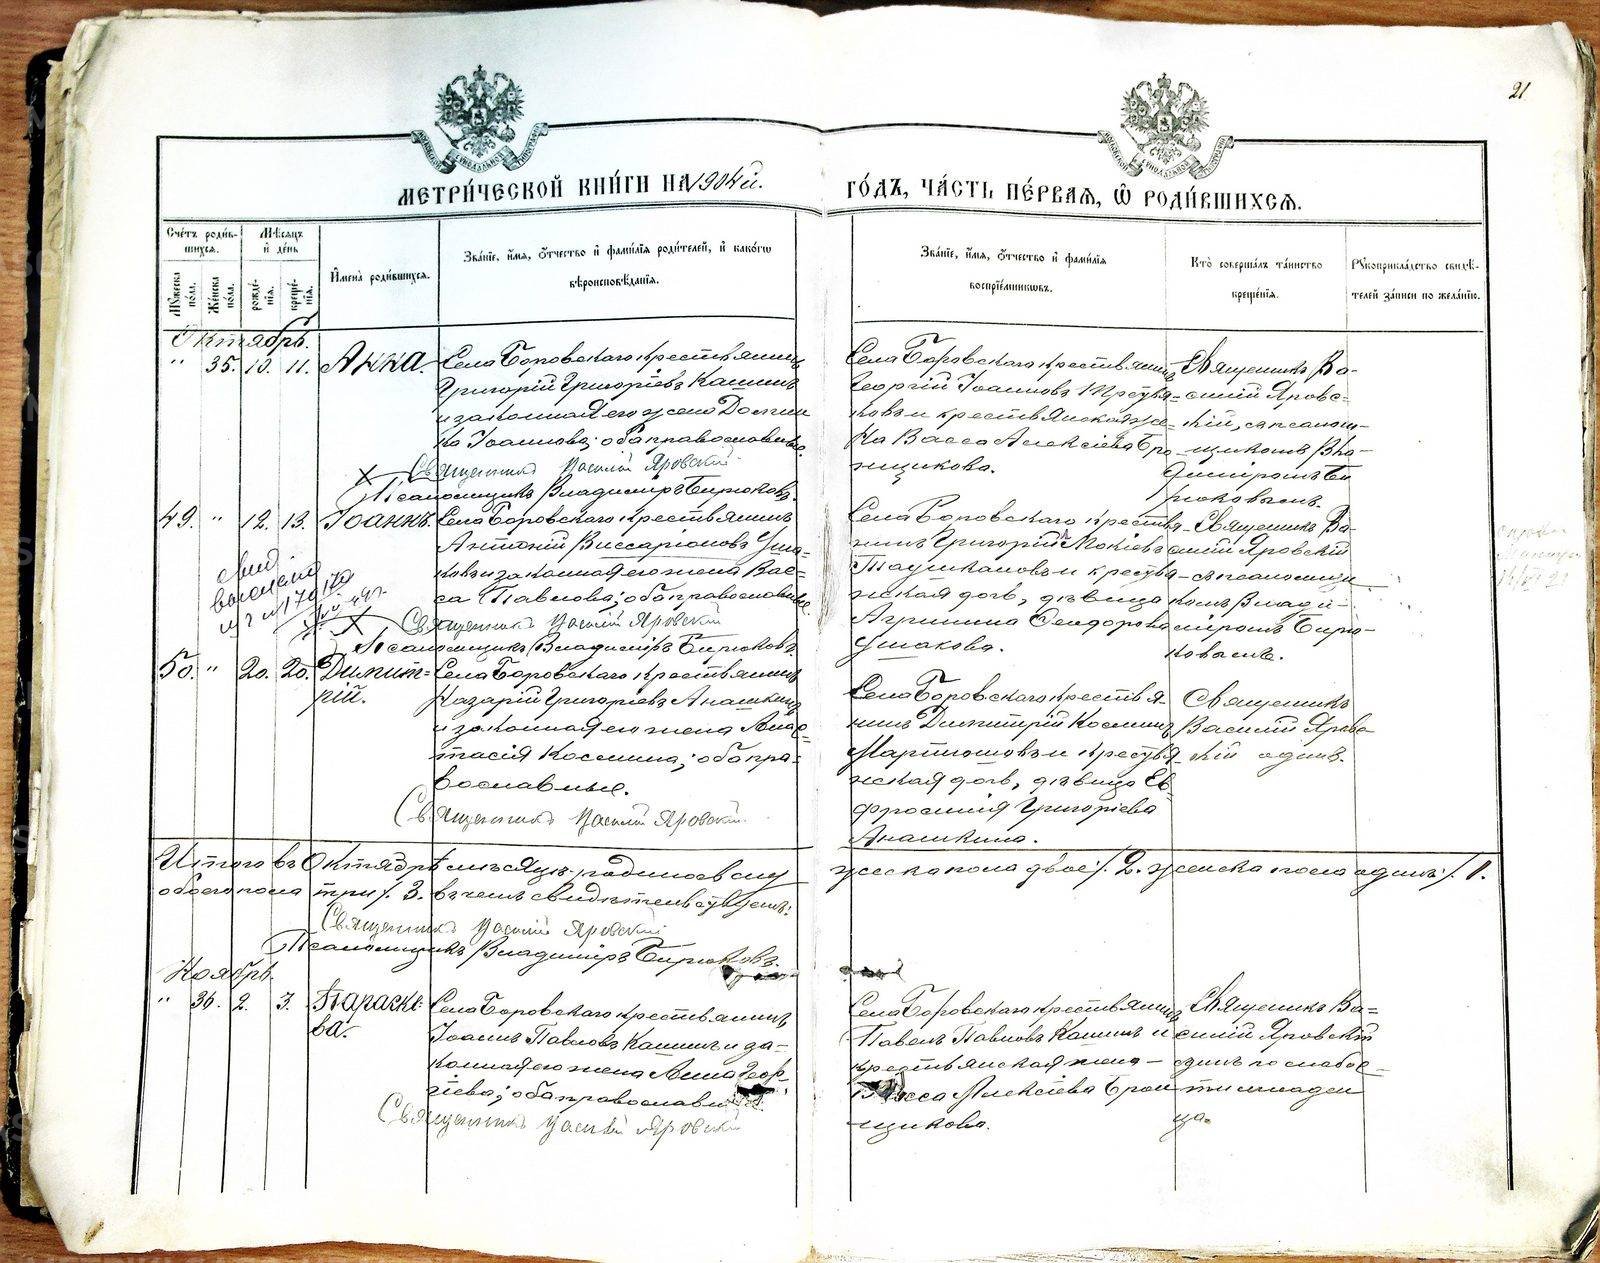 21
МЕТРИ́ЧЕСКОЙ КНИ́ГИ НА 1904й. ГО́ДЪ, ЧА́СТЬ ПЕ́РВАЯ, Ѿ РОДИ́ВШИХСѦ.
Сче́тъ роди́в-
шихсѧ.
Мꙋ́жеска по́ла.
Же́нска по́ла.
Мѣ́сѧцъ
и҆ де́нь
рожде́-
нїѧ.
креще́-
нїѧ.
И҆мена̀ роди́вшихсѧ.
Зва́нїе, и҆́мѧ, ѻ҆́тчество и҆ фами́лїѧ роди́телей, и҆ како́гѡ
вѣроисповѣ́данїѧ.
Зва́нїе, и҆́мѧ, ѻ҆́тчество и҆ фами́лїѧ
воспрїе́мникѡвъ.
Кто̀ соверша́лъ та́инство
креще́нїѧ.
Рꙋкоприкла́дство свидѣ́-
телей за́писи по жела́нїю.
Октябрь.
" 35. 10. 11. Анна.
Села Боровскаго крестьянинъ
Григорій Григоріевъ Кашинъ
и законная его жена Домни-
ка Іоаннова; оба православные.
Священникъ Василій Яровскій
Псаломщикъ Владиміръ Бирюковъ.
Села Боровскаго крестьянинъ
Георгій Іоанновъ
и крестьянская же-
на Васса Алексіева Бро-
нщикова.
Священникъ Ва-
силій Яровс-
кій, съ псалом-
щикомъ Вла-
диміромъ Би-
рюковымъ.
49. " 12. 13. Іоаннъ.
Села Боровскаго крестьянинъ
Антоній Виссаріоновъ Уша-
ковъ и законная его жена Вас-
са Павлова; оба православные.
Священникъ Василій Яровскій
Псаломщикъ Владиміръ Бирюковъ.
Села Боровскаго крестья-
нинъ Григорій Мокіевъ
и крестья-
нская дочь, дѣвица
Агрипина Ѳеодорова
Ушакова.
Священникъ Ва-
силій Яровскій
съ псаломщи-
комъ Влади-
міромъ Бирю-
ковымъ.
50. " 20. 20. Димит-
рій.
Села Боровскаго крестьянинъ
Назарій Григоріевъ Анашкинъ
и законная его жена Анас-
тасія Космина; оба пра-
вославные.
Священникъ Василій Яровскій
Села Боровскаго крестья-
нинъ Димитрій Косминъ
Мартюшовъ и крестья-
нская дочь, дѣвица Ев-
фросинія Григоріева
Анашкина.
Священникъ
Василій Яровс-
кій одинъ.
Итого въ Октябрѣ мѣсяцѣ родилось му-
жеска пола двое /. 2. женска пола одинъ /. 1.
обоего пола три /. 3. въ чемъ свидѣтельствуемъ:
Священникъ Василій Яровскій
Псаломщикъ Владиміръ Бирюковъ.
Ноябрь.
" 36. 2. 3. Параске-
ва.
Села Боровскаго крестьянинъ
Іоаннъ Павловъ Кашинъ и за-
конная его жена Анна Геор-
гіева; оба православн
Священникъ Василій Яровскій
Села Боровскаго крестьянинъ
Павелъ Павловъ Кашинъ и
крестьянская жена
Васса Алексіева Брон-
щикова.
Священникъ Ва-
силій Яровскій
одинъ по слабос-
ти младен-
ца.